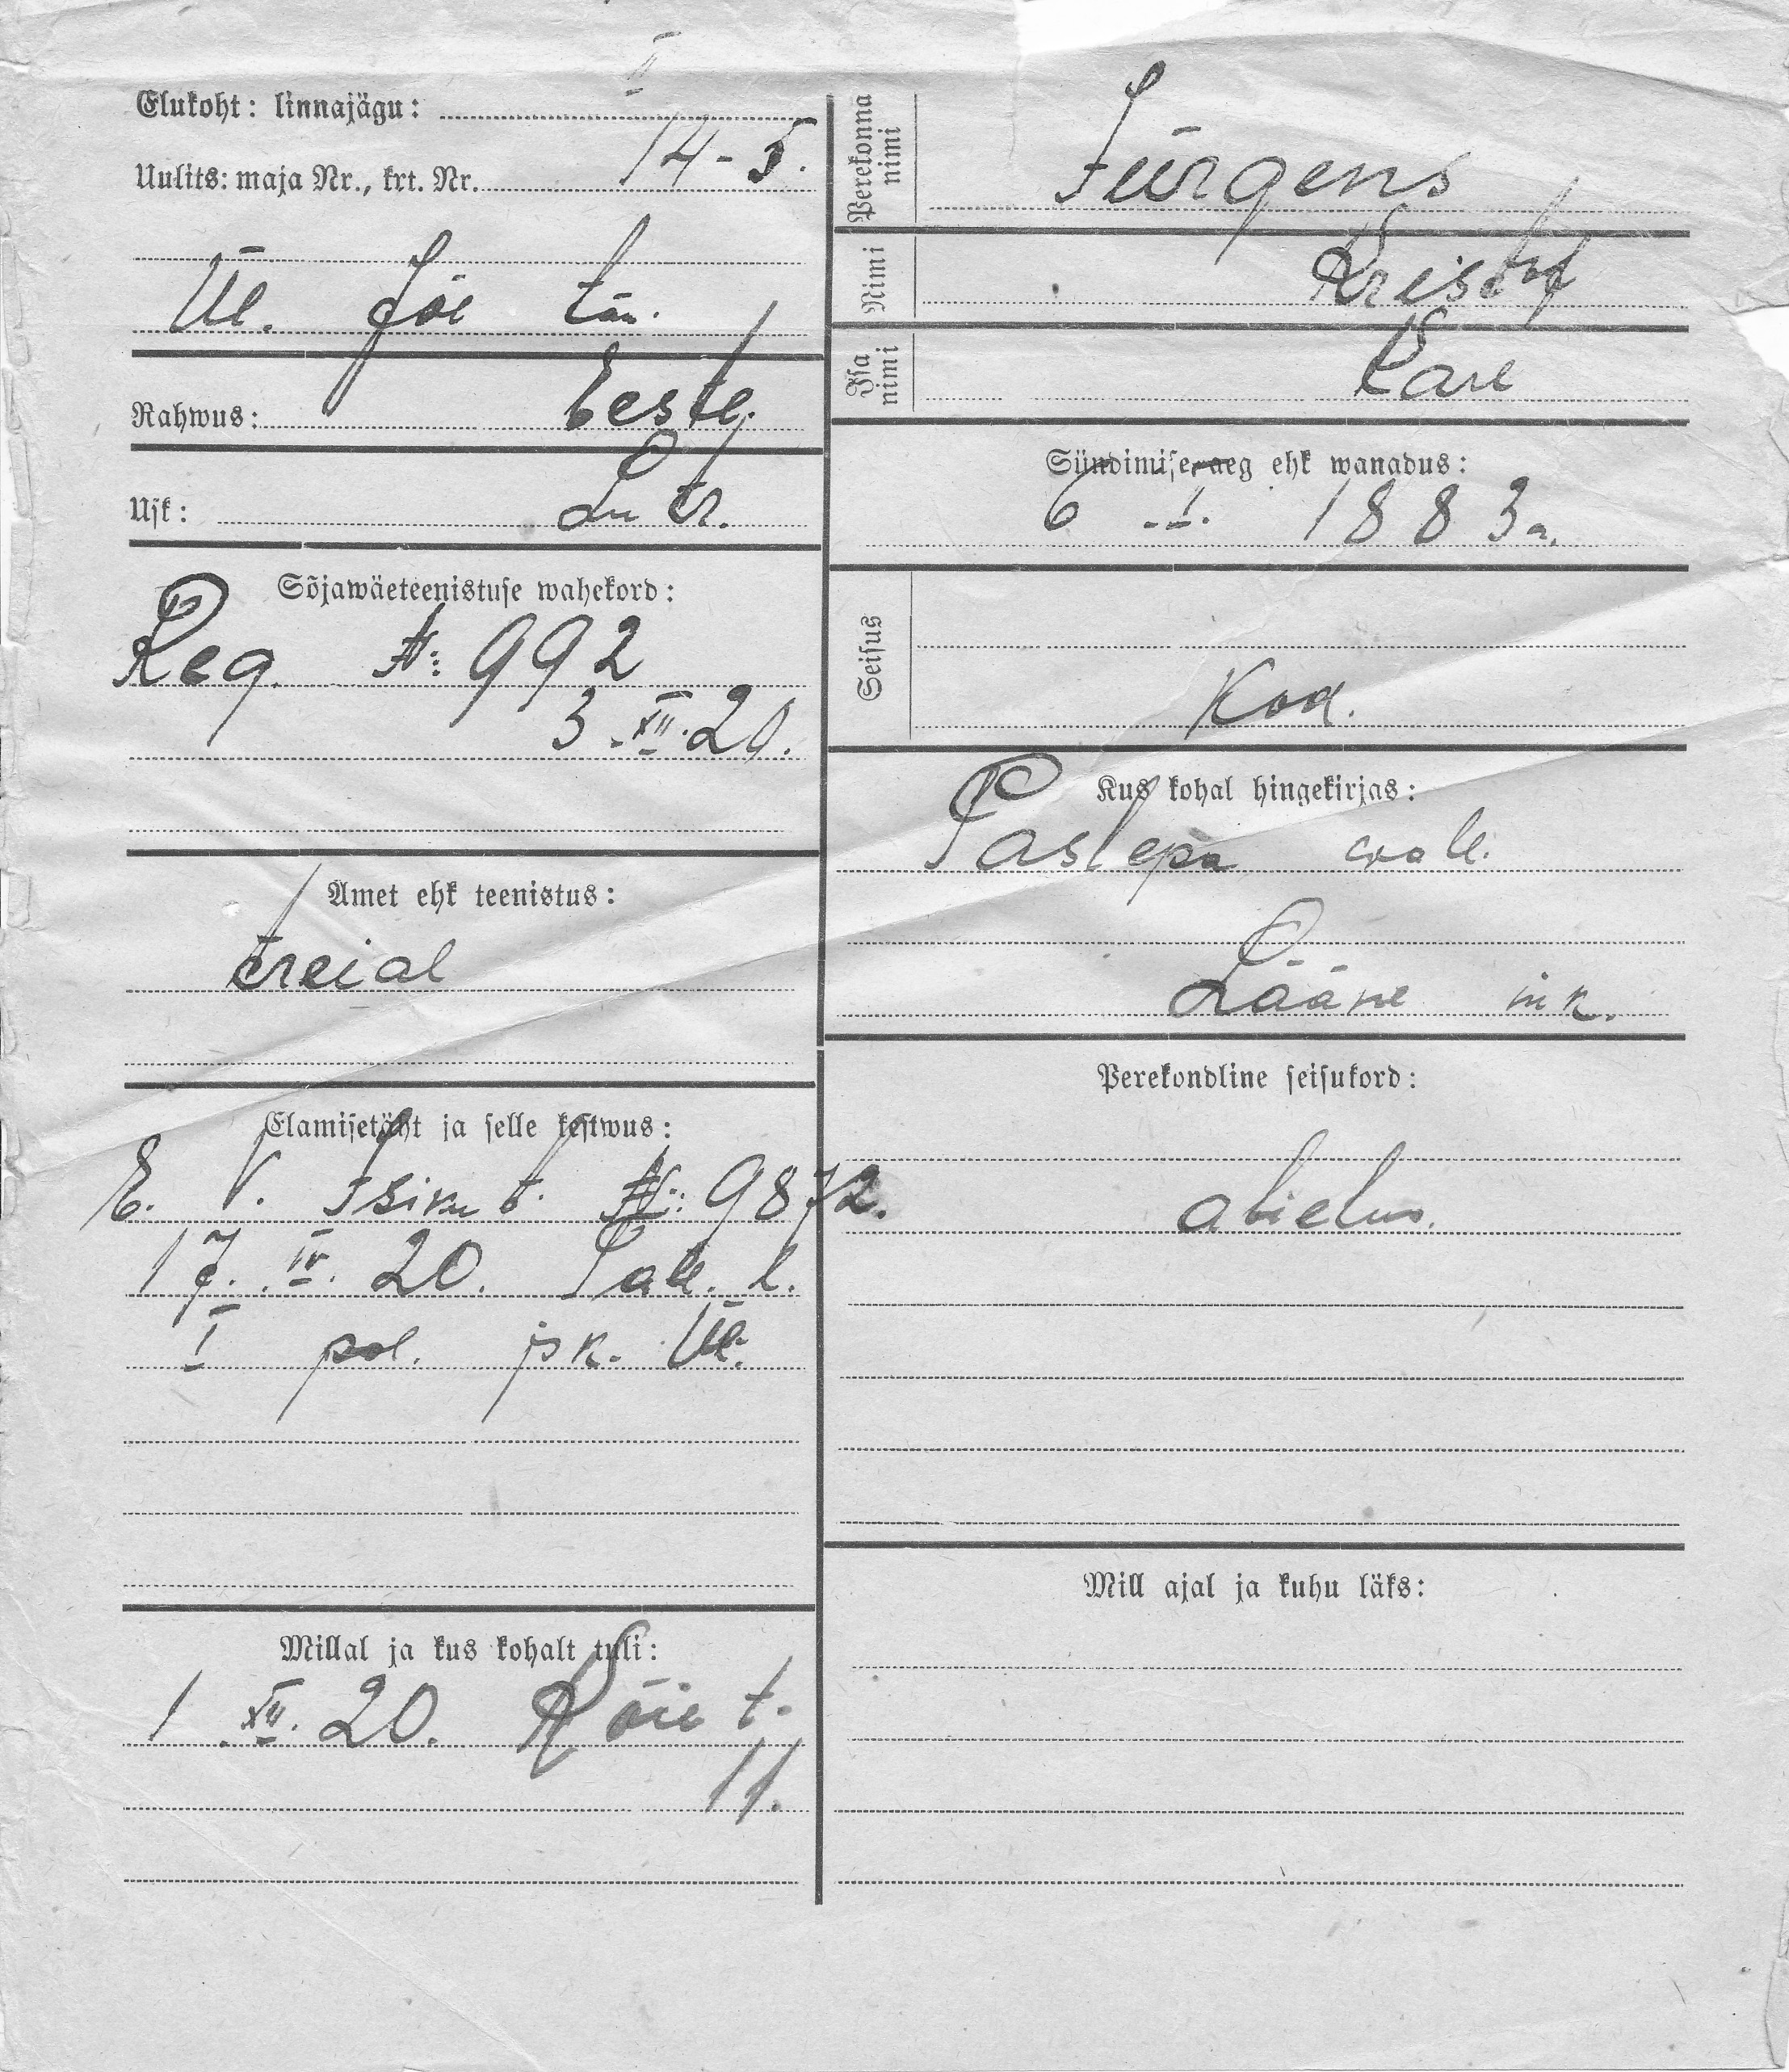 II
Elukoht: linnajägu:
Uulits: maja Nr., krt. Nr. 14-5.
Ül. Jõe tän.
Rahwus: Eestl.
Usk: Lutr.
Sõjawäeteenistuse wahekord:
Reg. №: 992
3.XII.20.
Amet ehk teenistus:
treial
Elamisetäht ja selle kestwus:
E. V. Isiku t. №: 9872.
17.IV.20. Tall. l.
I pol. jsk. Ül.
Millal ja kus kohalt tuli:
1.XII.20. Kõie t.
11.
Perekonna nimi Jürgens
Nimi Kristof
Isa nimi Karl
Sündimise aeg ehk wanadus:
6.I. 1883 a.
Seisus
Kod.
Kus kohal hingekirjas:
Paslepa wall.
Lääne mk.
Perekondline seisukord:
abielus.
Mill ajal ja kuhu läks: